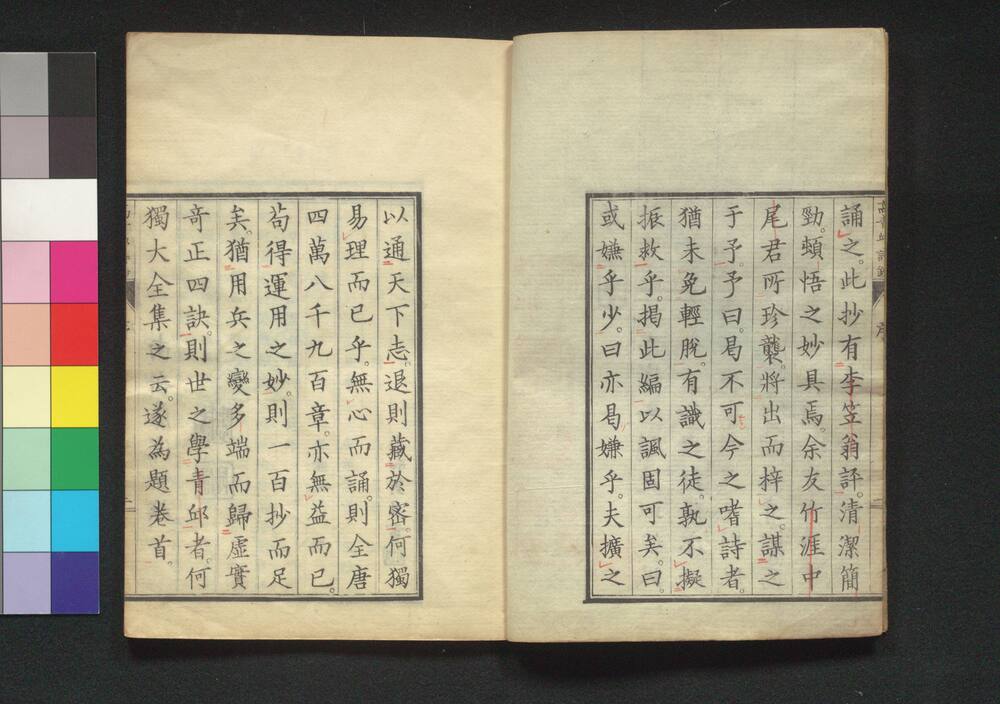 誦之。此抄有李笠翁評。清潔簡
勁。頓悟之妙具焉。余友竹涯中
尾君所珍襲。將出而梓之。謀之
于予。予曰。曷不可。今之嗜詩者。
猶未免輕脫。有識之徒。孰不擬
振救乎。揭此編以諷固可矣。曰。
或嫌乎少。曰亦曷嫌乎。夫擴之
以通天下志。退則藏於密。何獨
易理而已乎。無心而誦。則全唐
四萬八千九百章。亦無益而已。
茍得運用之妙。則一百抄而足
矣。猶用兵之變多端而歸虛實
竒正四訣。則世之學青邱者。何
獨大全集之云。遂為題卷首。